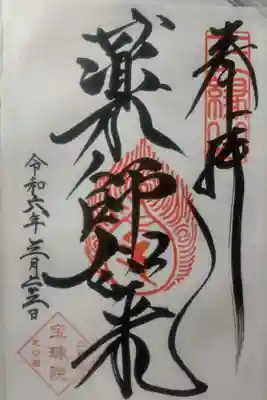 奉拝
薬師如来
令和六年三月二三日
宝珠院